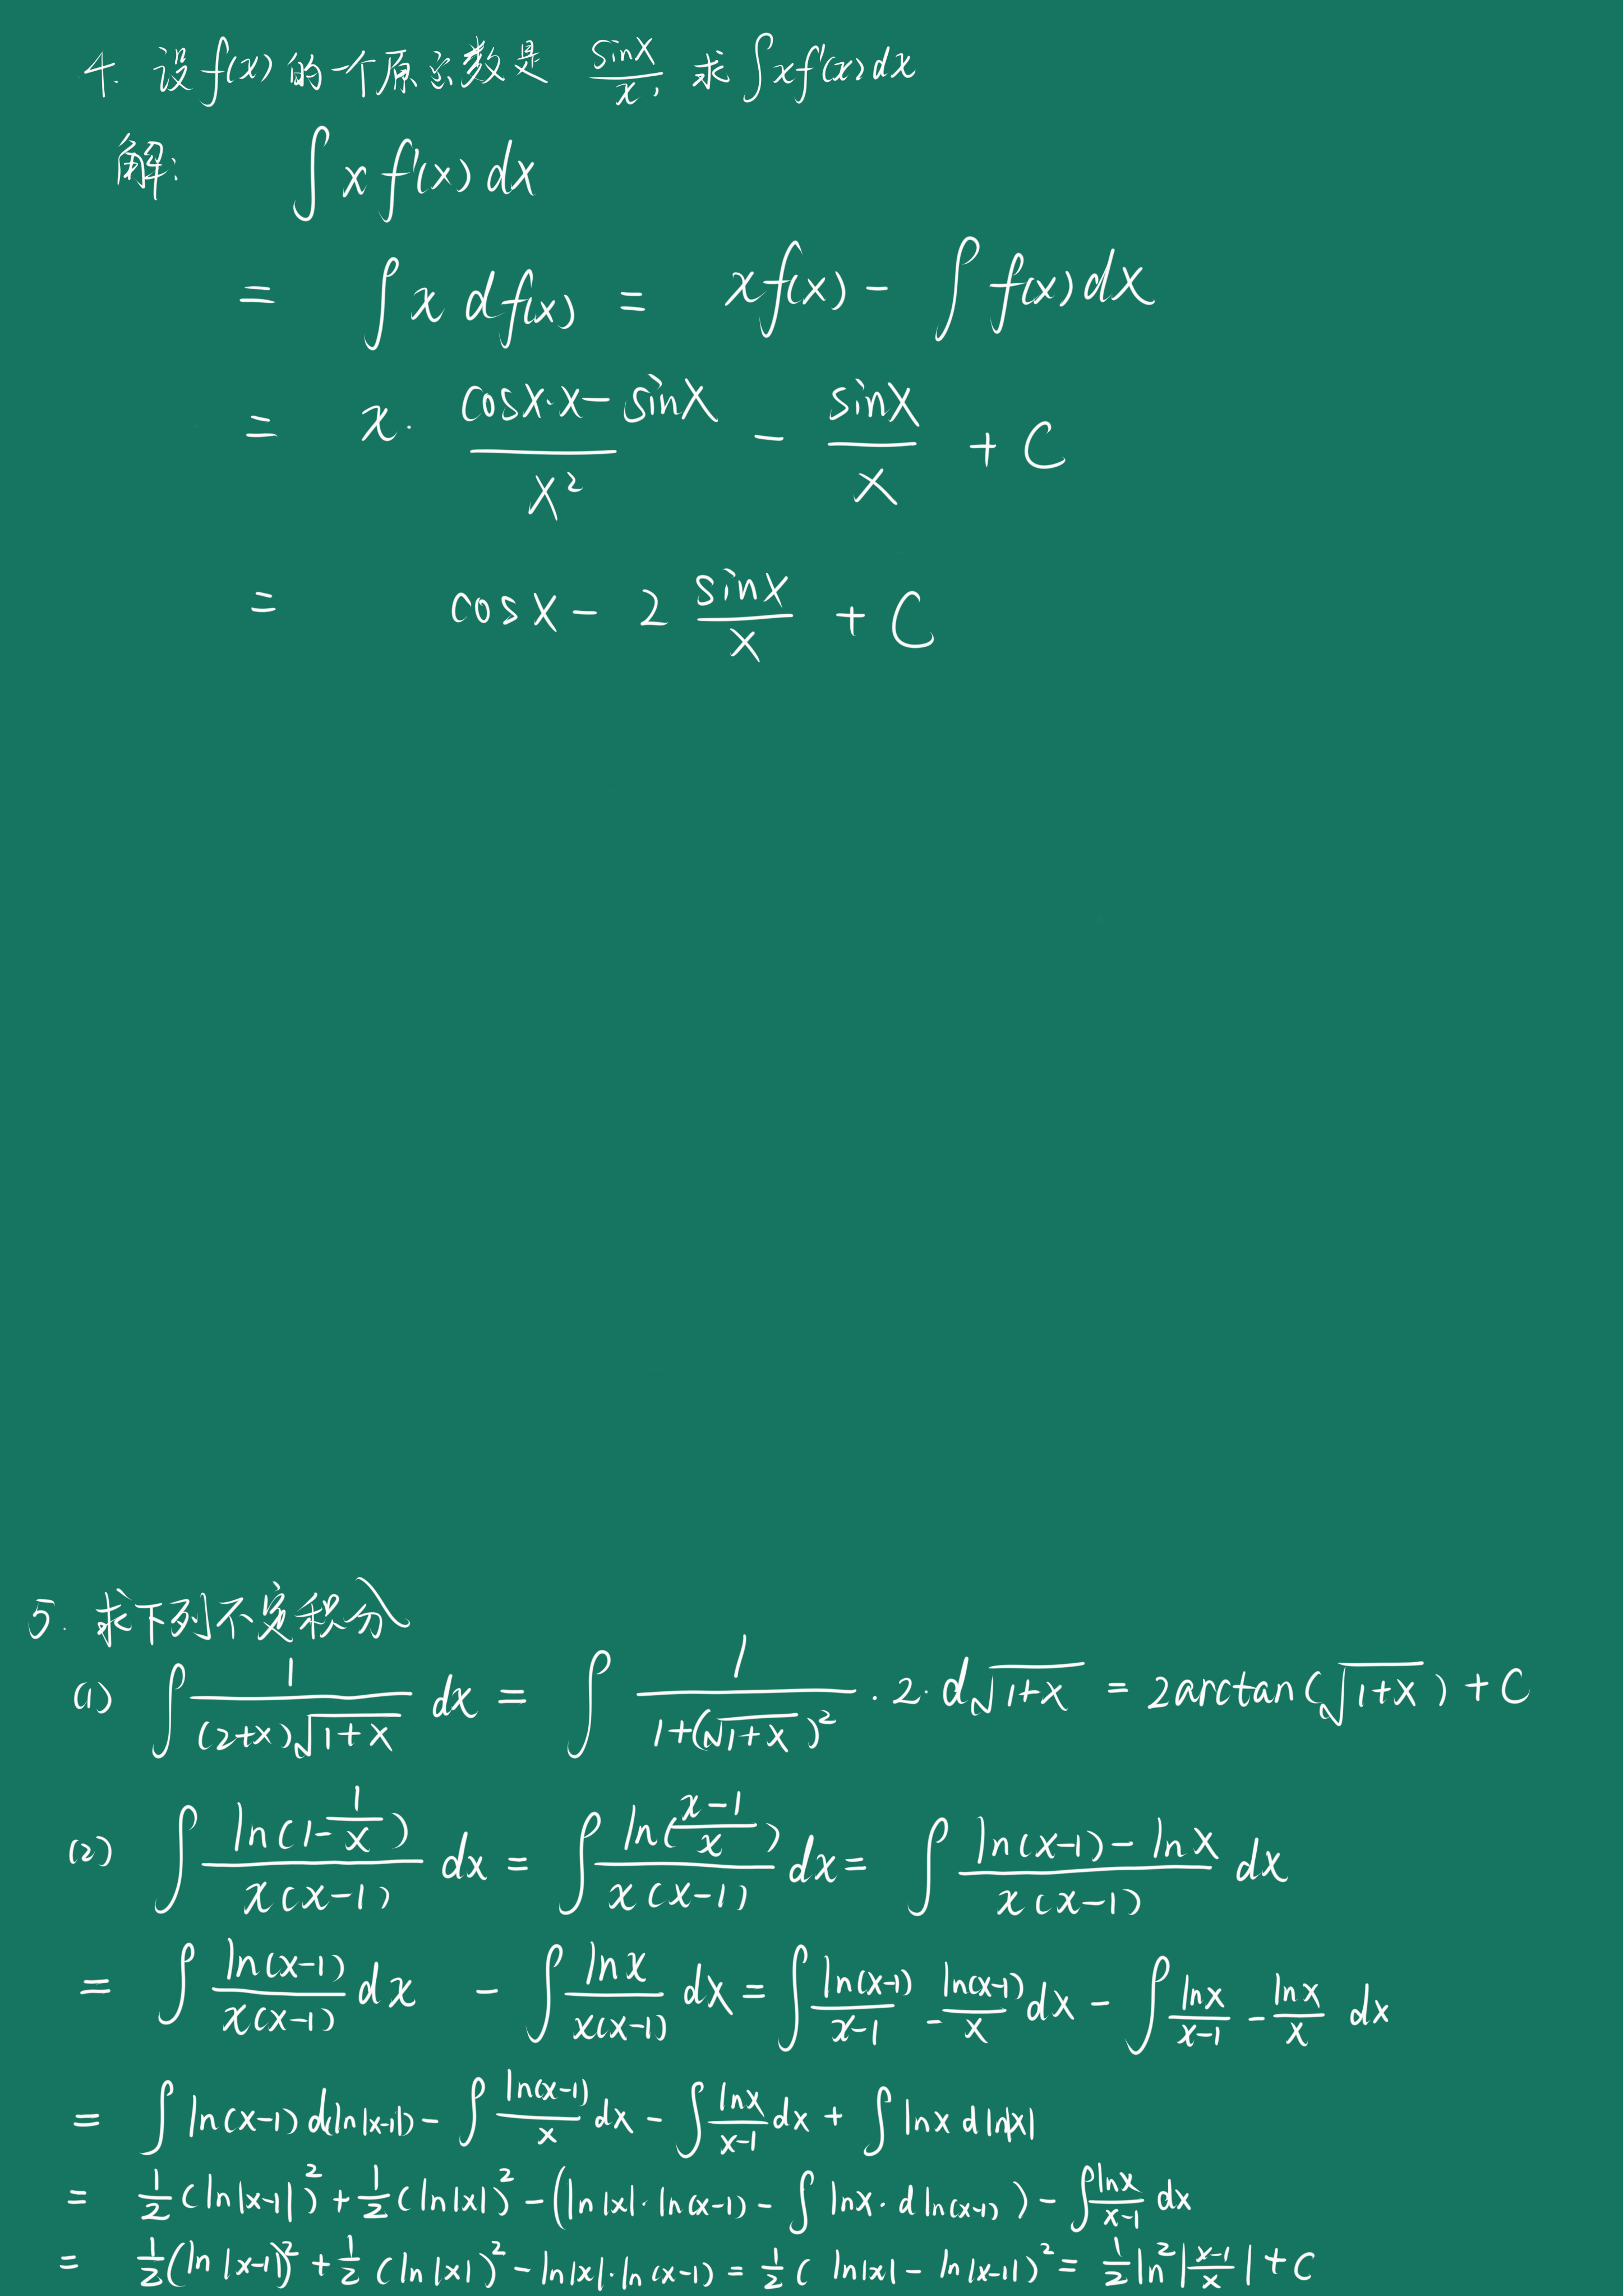 4. 设f(x)的一个原函数是 sinx/x, 求∫xf'(x)dx
解: ∫xf'(x)dx
= ∫x df(x) = xf(x) - ∫f(x)dx
= x· (cosx·x - sinx)/x² - sinx/x + C
= cosx - 2 sinx/x + C
5. 求下列不定积分
(1) ∫ 1/((2+x)√(1+x)) dx = ∫ 1/(1+(√(1+x))²) ·2·d√(1+x) = 2arctan(√(1+x)) + C
(2) ∫ ln(1-1/x)/(x(x-1)) dx = ∫ ln((x-1)/x)/(x(x-1)) dx = ∫ (ln(x-1)-lnx)/(x(x-1)) dx
= ∫ ln(x-1)/(x(x-1)) dx - ∫ lnx/(x(x-1)) dx = ∫ ln(x-1)/(x-1) - ln(x-1)/x dx - ∫ lnx/(x-1) - lnx/x dx
= ∫ ln(x-1) d(ln|x-1|) - ∫ ln(x-1)/x dx - ∫ lnx/(x-1) dx + ∫ lnx dln|x|
= 1/2 (ln|x-1|)² + 1/2 (ln|x|)² - (ln|x|·ln(x-1) - ∫ lnx·d ln(x-1)) - ∫ lnx/(x-1) dx
= 1/2 (ln|x-1|)² + 1/2 (ln|x|)² - ln|x|·ln(x-1) = 1/2 (ln|x| - ln|x-1|)² = 1/2 ln²|(x-1)/x| + C